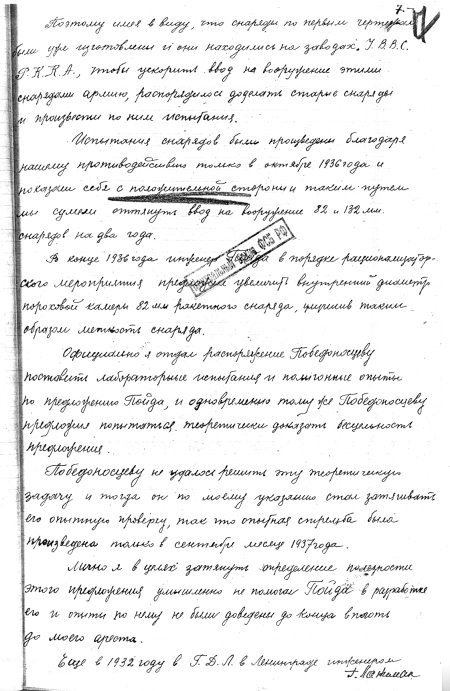 7.
Поэтому имея в виду, что снаряды по первым чертежам
были уже изготовлены и они находились на заводах. У.В.В.С.
Р.К.К.А., чтобы ускорить ввод на вооружение этими
снарядами армию, распорядилось доделать старые снаряды
и произвести по ним испытания.
Испытания снарядов были произведены благодаря
нашему противодействию только в октябре 1936 года и
показали себя с положительной стороны и таким путем
мы сумели оттянуть ввод на вооружение 82 и 132 мм.
снарядов на два года.
В конце 1936 года инженер Пойда в порядке рационализатор-
ского мероприятия предложил увеличить внутренний диаметр
пороховой камеры 82 мм ракетного снаряда, улучшив таким
образом меткость снаряда.
Официально я отдал распоряжение Победоносцеву
поставить лабораторные испытания и полигонные опыты
по предложению Пойда, и одновременно тому же Победоносцеву
предложил попытаться теоретически доказать
предложения.
Победоносцеву не удалось решить эту теоретическую
задачу и тогда он по моему указанию стал затягивать
его опытную проверку, так что опытная стрельба была
произведена только в сентябре месяце 1937 года.
Лично я в целях затянуть определение полезности
этого предложения умышленно не помогал Пойда в разработке
его и опыты по нему не были доведены до конца вплоть
до моего ареста.
Еще в 1932 году в Г.Д.Л. в Ленинграде инженером
Г. Лангемак
ФСБ РФ